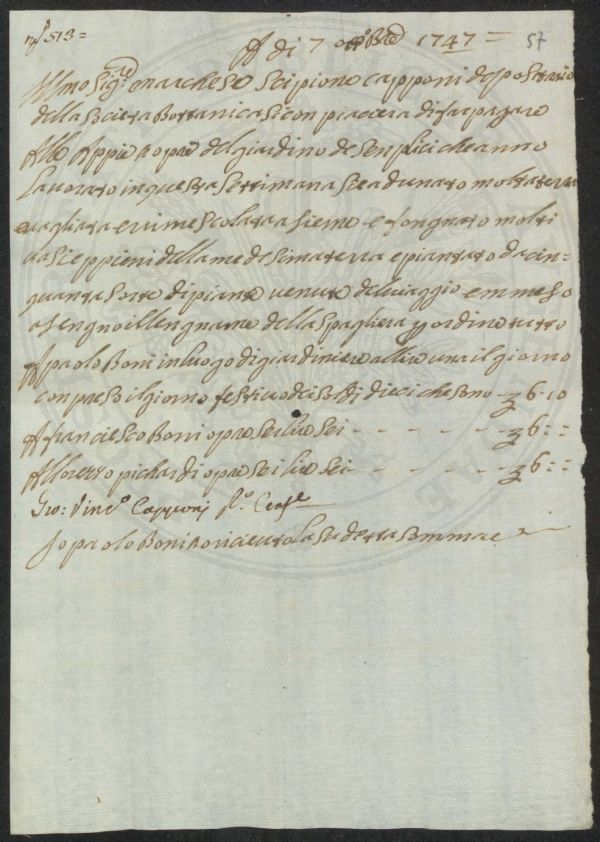 nº 513 = 57
A di 7 ottoBre 1747 =
Illmo Sigre marchese Scipione capponi depositario
della Società Bottanica si conpiacera di far pagare
Alle Appie opre del giardino de Senplici che anno
Lavorato in questa Settimana Si è adunato molta terra
e vagliata e rimescolata asieme e fongnato molti
vasi e ppieni della medesima terra e piantato da cin=
quanta Sorte di piante venute del viaggio e mmeso
asengno il lengname della Spagliera per ordine tutto
A paolo Boni in luogo di giardiniere allire una il giorno
conpreso il giorno festivo di Soldi dieci che Sono - £ 6·10
A franciesco Boni opre Sei lire Sei - - - - - £ 6::
A Lorezzo pichardi opre Sei lire Sei - - - - - £ 6::
Gio: Vinco Capponi Po Cense
Io paolo Boni o riceuto La Sudetta Somma